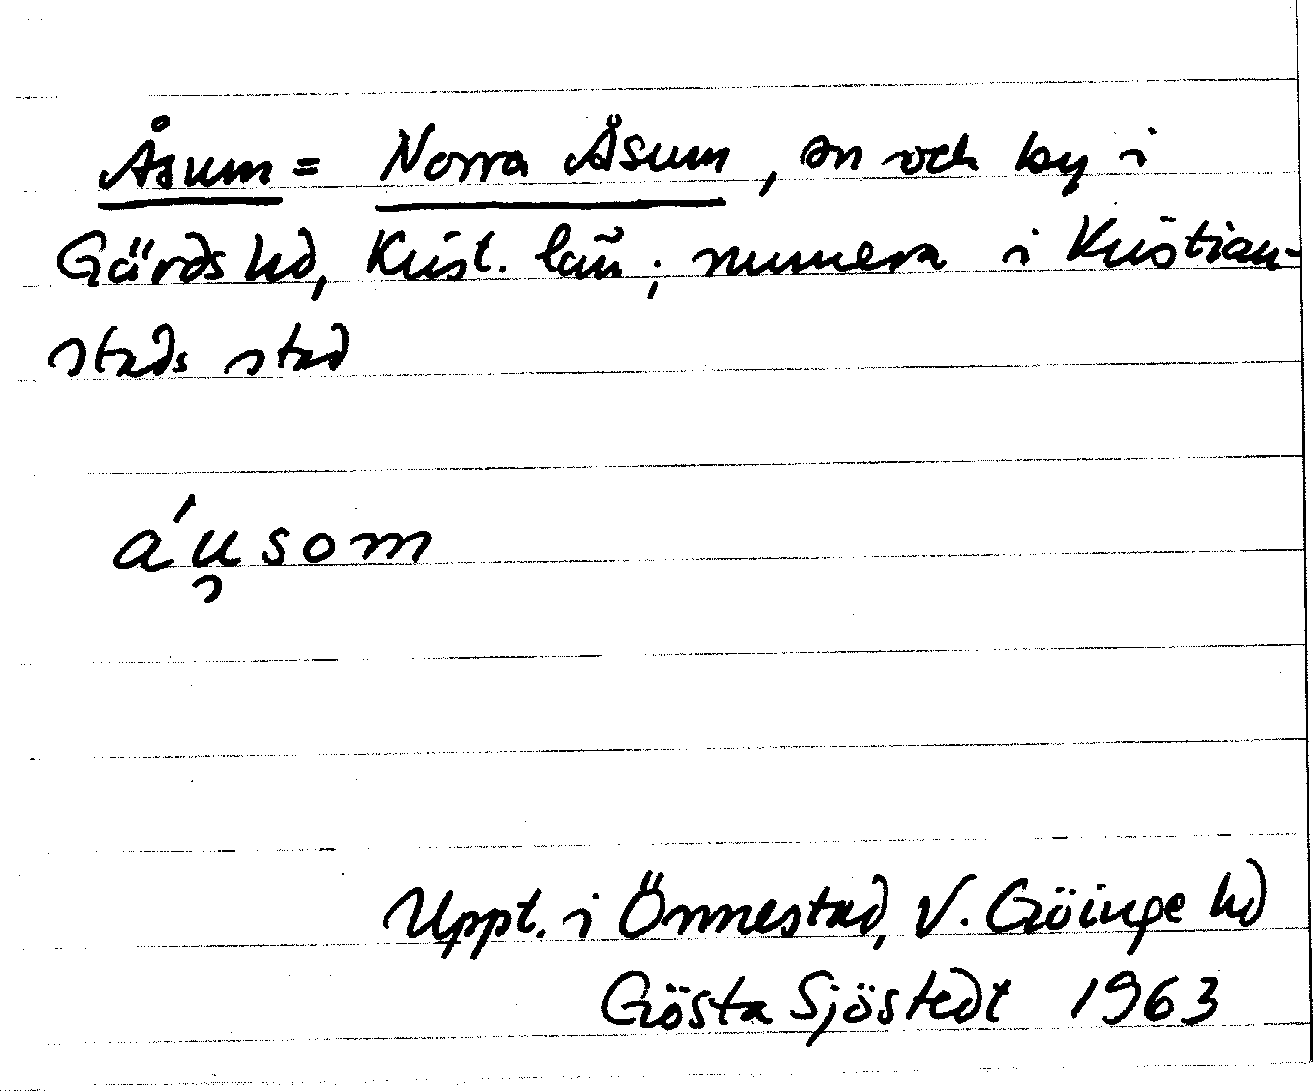 Åsum = Norra Åsum, sn och by i
Gärds hd, Krist. län; numera i Kristian-
stads stad
áu̯som
Uppt. i Önnestad, V. Göinge hd
Gösta Sjöstedt 1963